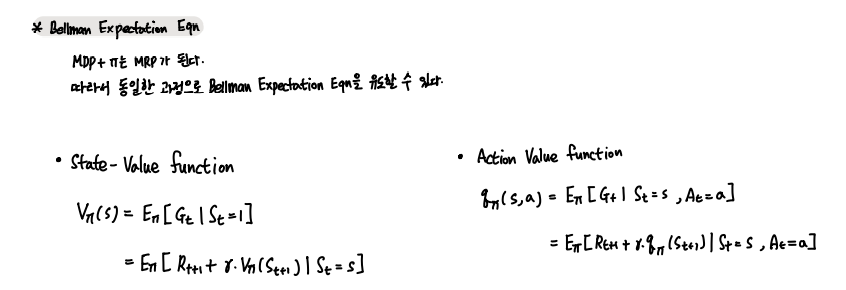 * Bellman Expectation Eqn
MDP + π는 MRP가 된다.
따라서 동일한 과정으로 Bellman Expectation Eqn을 유도할 수 있다.
• State-Value function
V_π(s) = E_π[G_t | S_t = 1]
= E_π[R_{t+1} + γ·V_π(S_{t+1}) | S_t = s]
• Action Value function
q_π(s,a) = E_π[G_t | S_t = s, A_t = a]
= E_π[R_{t+1} + γ·q_π(S_{t+1}) | S_t = s, A_t = a]